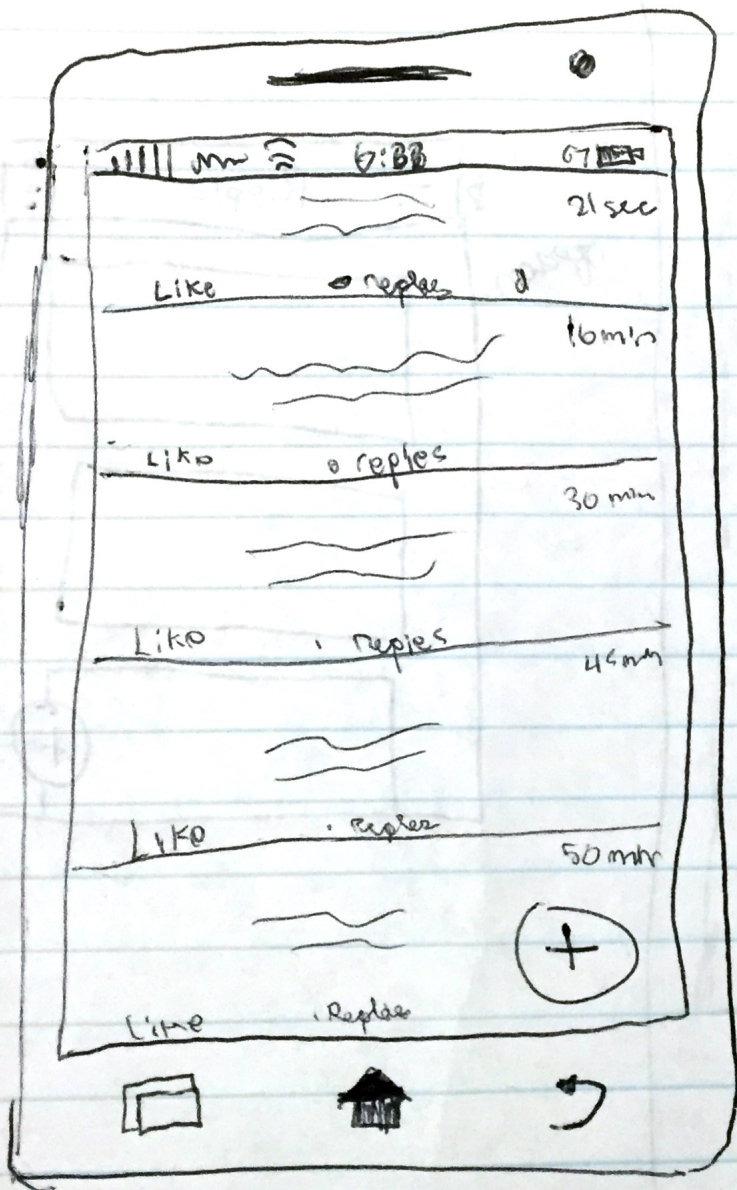 21 sec
Like reples
16 min
Like replies
30 min
Like repies
45 min
Like Replez
50 min
Like Replae
+